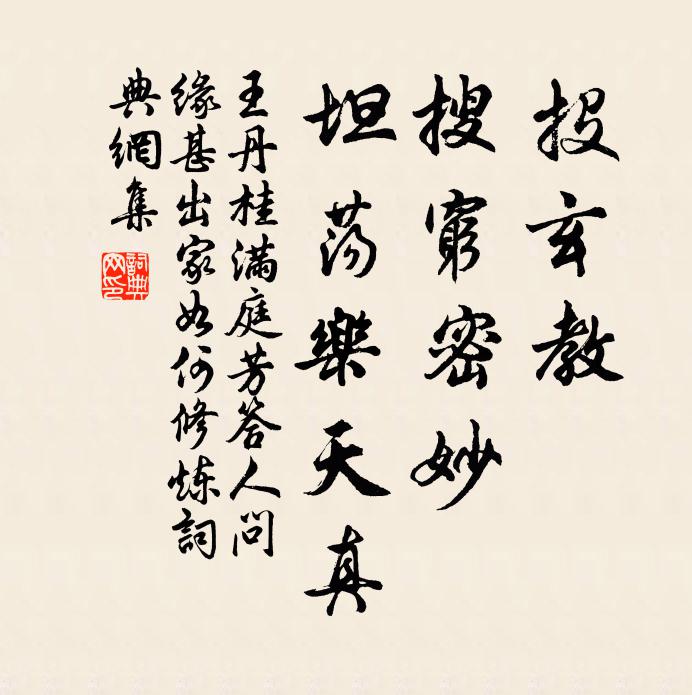 投玄教
搜窮密妙
坦蕩樂天真
王丹桂滿庭芳答人問
緣甚出家如何修炼詞
典網集
詞典网印